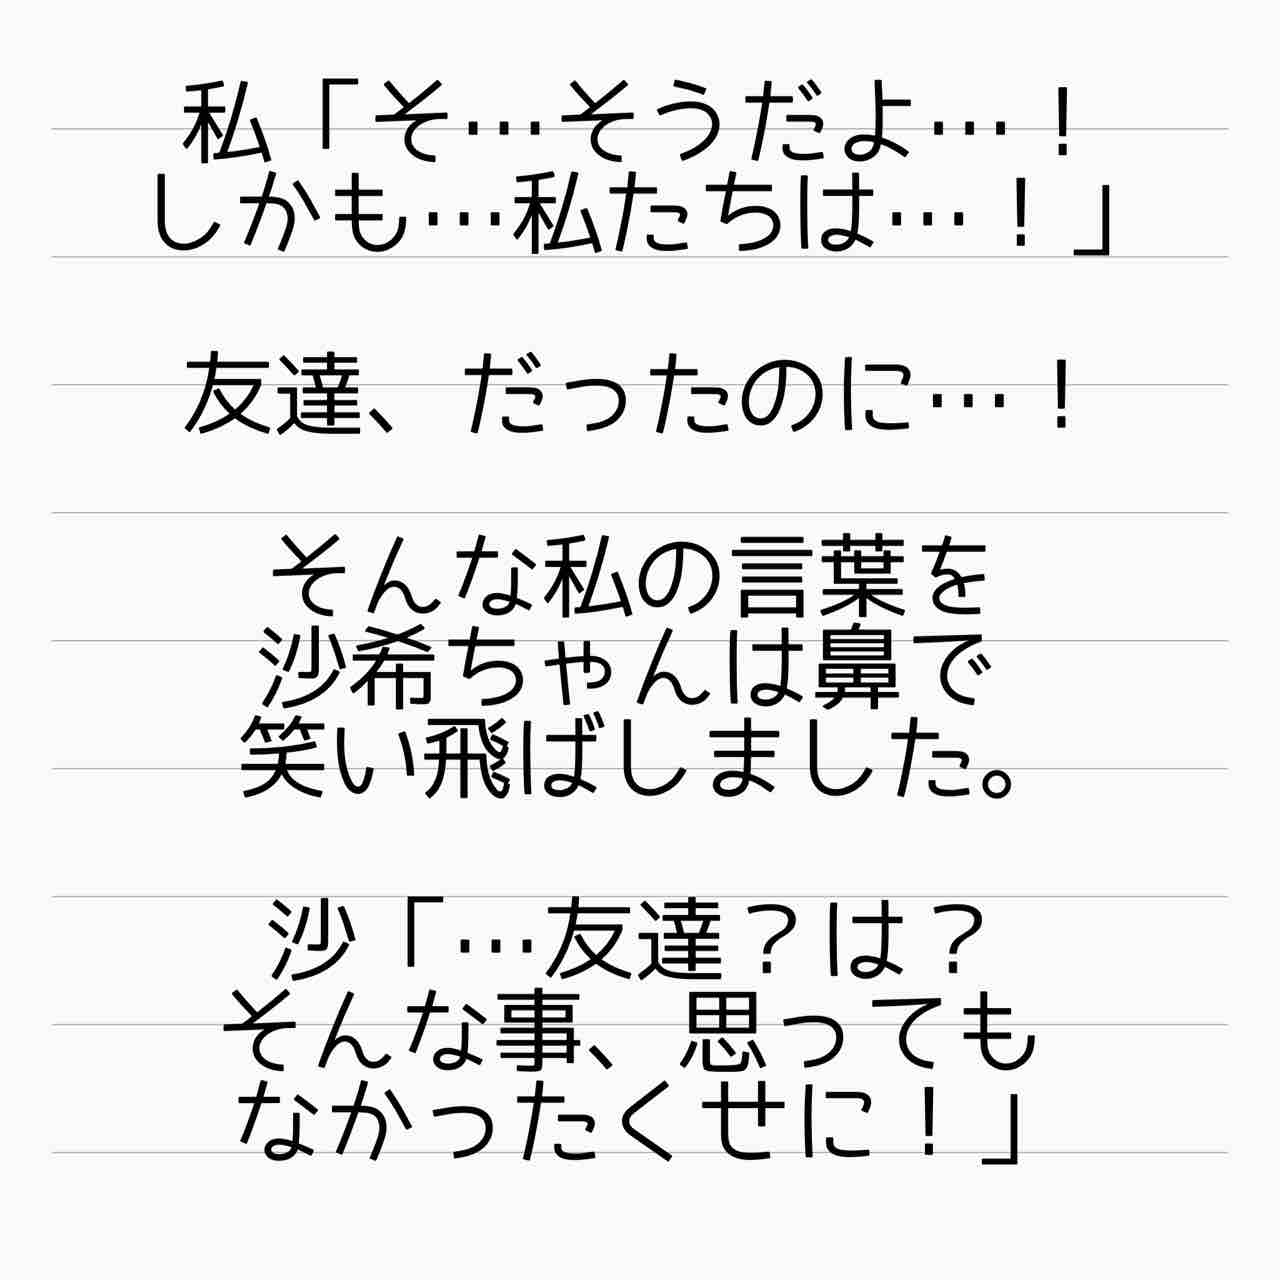 私「そ…そうだよ…！
しかも…私たちは…！」
友達、だったのに…！
そんな私の言葉を
沙希ちゃんは鼻で
笑い飛ばしました。
沙「…友達？は？
そんな事、思っても
なかったくせに！」